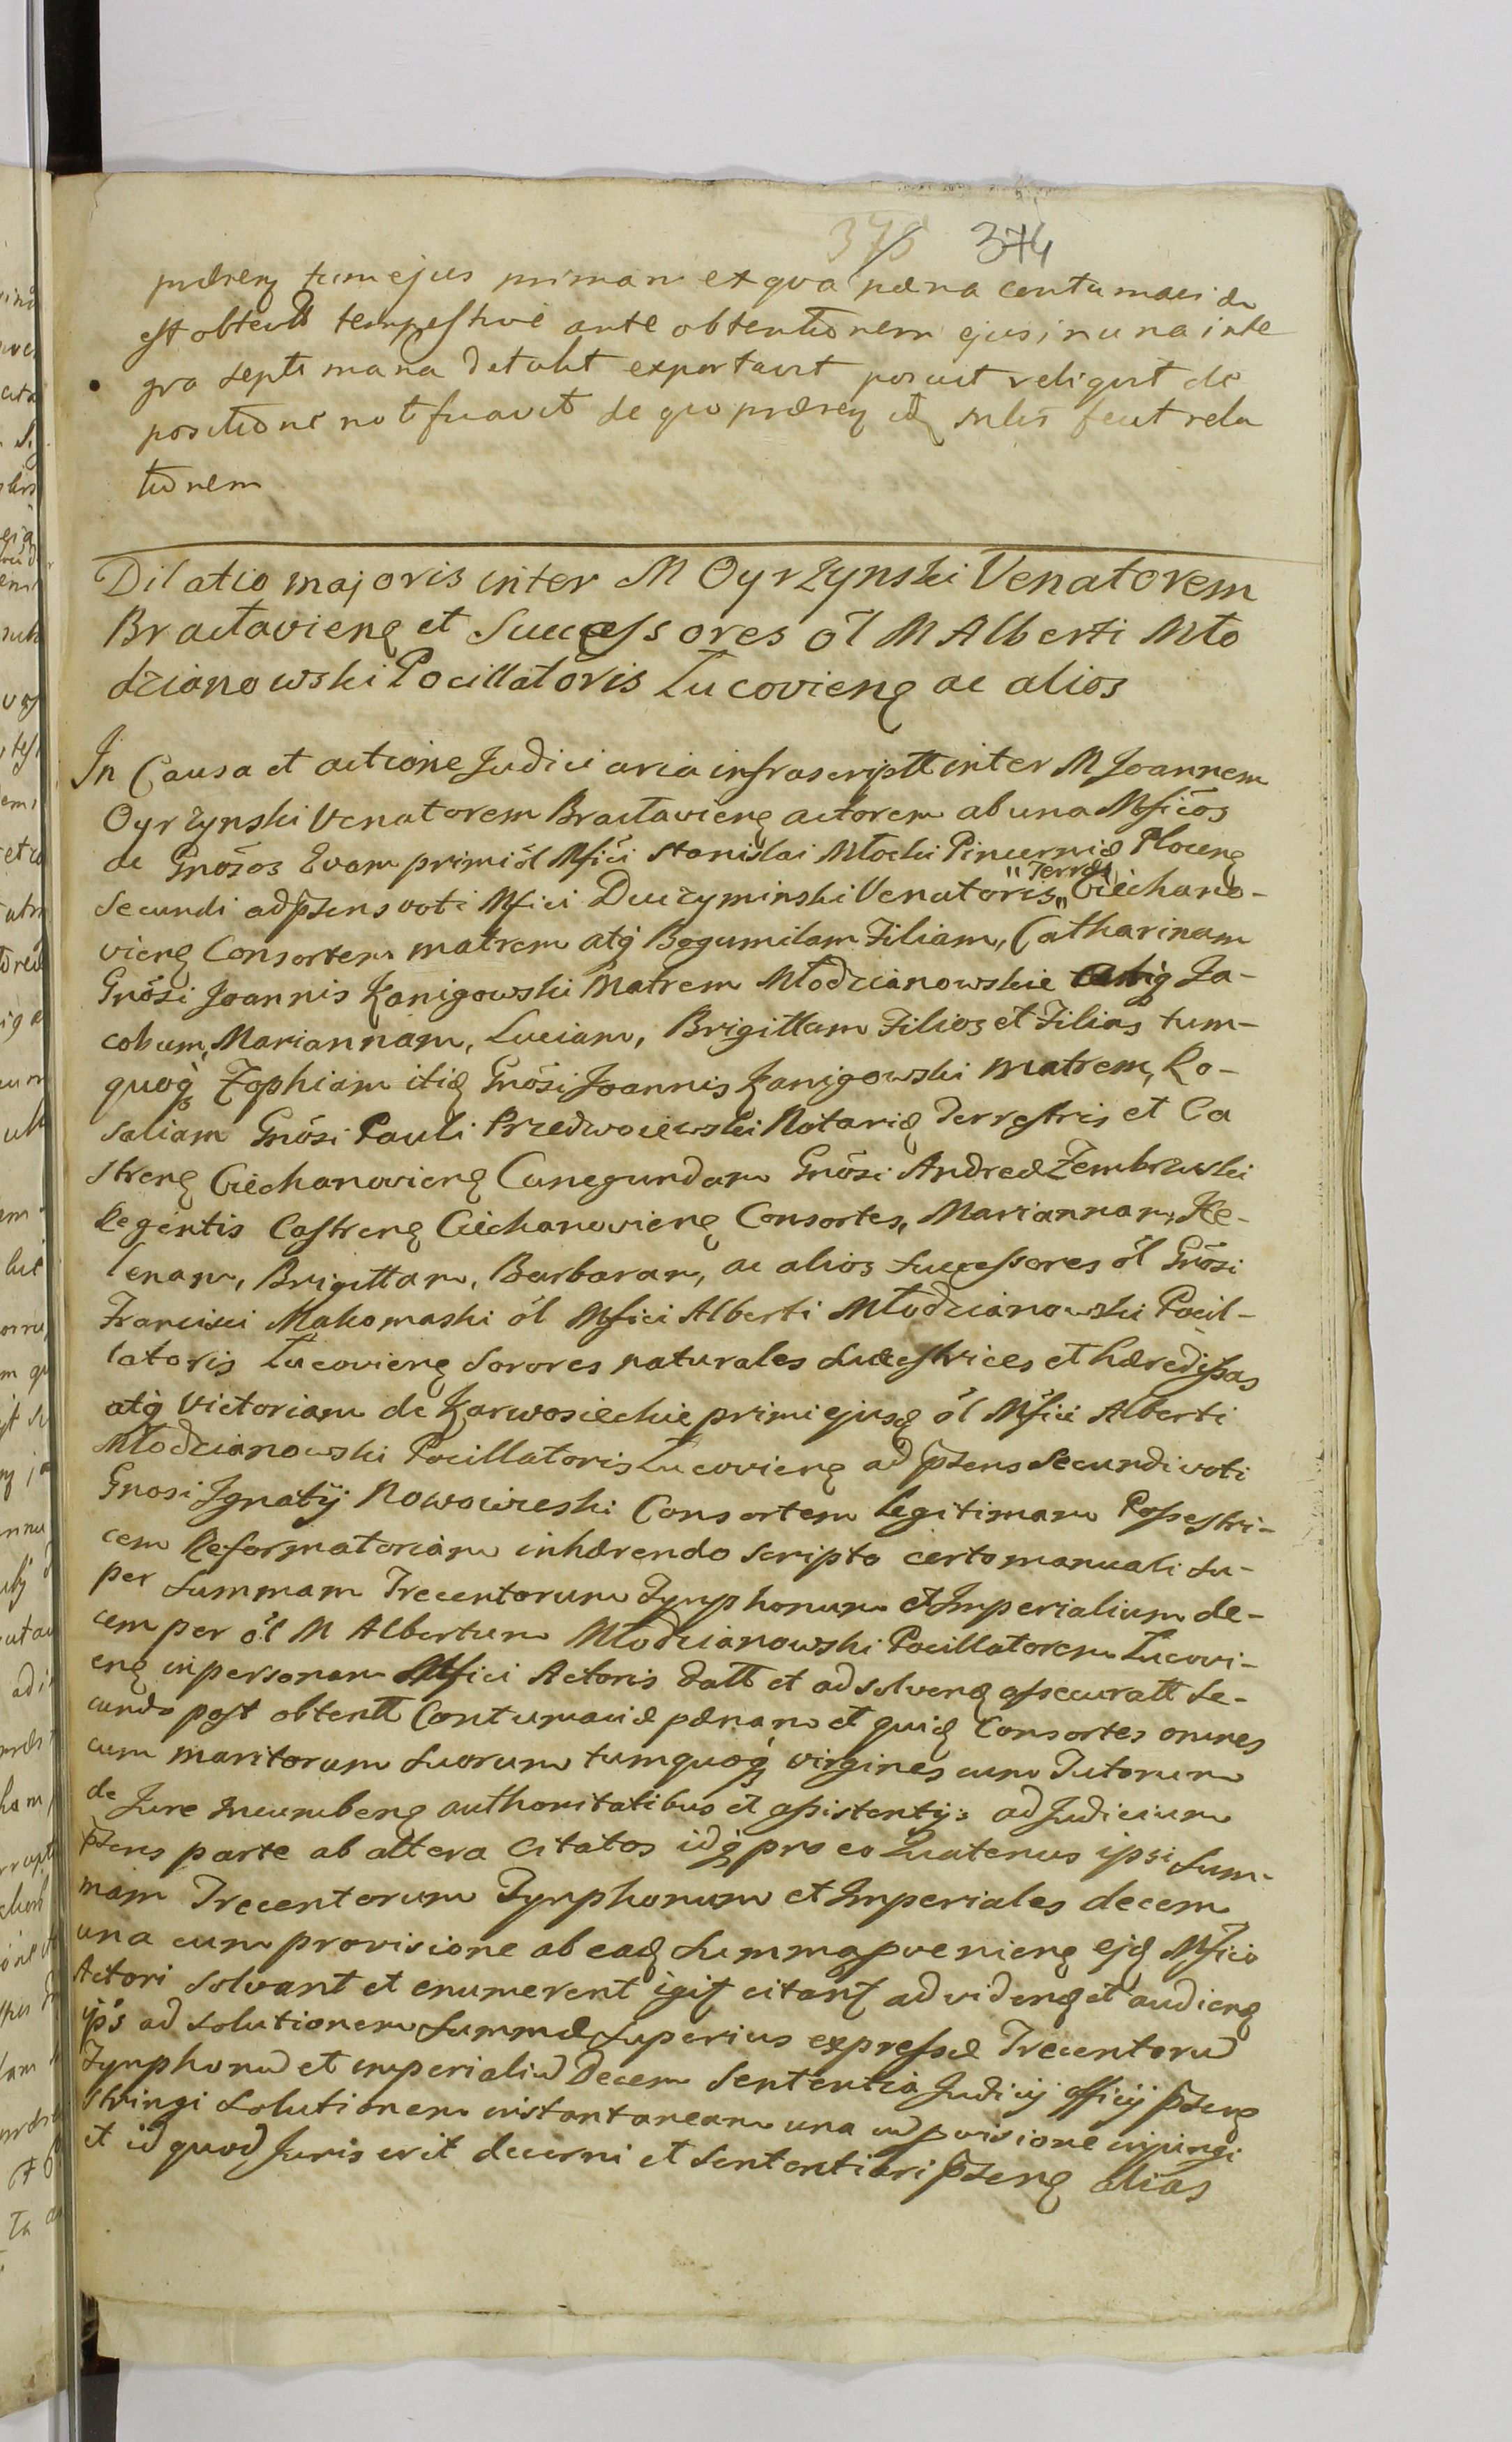 375 374
præreq tum ejus priman ex qva pæna contumaci æ
est obtentt tempestive ante obtentionem ejus in una inte
gra septi mana detulit exportavit posuit reliqvit de
positione notificavit de quo præreq itq
tionem
Dilatio majoris inter M Oyrzynski Venatorem
Bractavienę et Successores ól M Alberti Mło
dzianowski Pocillatoris Łucovienę ac alios
In Causa et actione Judiciaria infrascriptt inter M Joannem
Oyrzynski Venatorem Bractavienę actorem ab una Mficos
ac Gnósos Evam primi ól Mfici Stanislai Młocki Pincernæ Plocenę
Secundi ad pzens voti Mfici Duczyminski Venatoris „Terræ„ Ciechano-
vienę Consortem matrem atq̨ Bogumilam Filiam, Catharinam
Gnósi Joannis Kanigowski Matrem Młodzianowskie atq̨ Ja-
cobum, Mariannam, Luciam, Brigittam Filios et Filias tum-
quoq̨ Zophiam itid Gnósi Joannis Kanigowski matrem, Ro-
saliam Gnósi Pauli Przedwoiewski Notarię Terrestris et Ca
strenę Ciechanovienę Cunegundam Gnósi Andreæ Zembrzuski
Regentis Castrenę Ciechanovienę Consortes, Mariannam, He-
lenam, Brigittam, Barbaram, ac alios Successores ól Gnósi
Francisci Makomaski ól Mfici Alberti Młodzianowski Pocil-
latoris Łucovienę Sorores naturales Successtrices et hæredissas
atq̨ Victoriam de Karwosieckie primi ejusd ól Mfici Alberti
Młodzianowski Pocillatoris Łucovienę ad pzens Secundi voti
Gnosi Ignatij Nowowieski Consortem legitimam Possestri-
cem Reformatoriam inhærendo Scripto certo manuali su-
per Summam Trecentorum Tymphonum et Imperialium de-
cem per ól M Albertum Młodzianowski Pocillatorem Łucovi-
enę in personam Mfici Actoris datt et ad solvenę assecuratt Se-
cundo post obtentt Contumaciæ pænam et quid Consortes omnes
cum maritorum suorum tumquoq̨ virgines cum Tutorum
de Jure incumbenę authoritatibus et assistentijs ad Judicium
pzens parte ab altera Citatos idq̨ pro eo Quatenus ipsi Sum-
mam Trecentorum Tymphonum et Imperiales decem
una cum provisione ab ead Summa pvenienę ejd Mfico
Actori solvant et enumerent igit citant ad videnę et audienę
ips ad solutionem Summæ Superius expressæ Trecentoru
Tymphonu et imperialiu Decem Sententia Judicij officij pzenę
stringi Solutionem instantaneam una cu pvisione injungi
et id quod Juris erit decerni et Sententiari pzenę alias